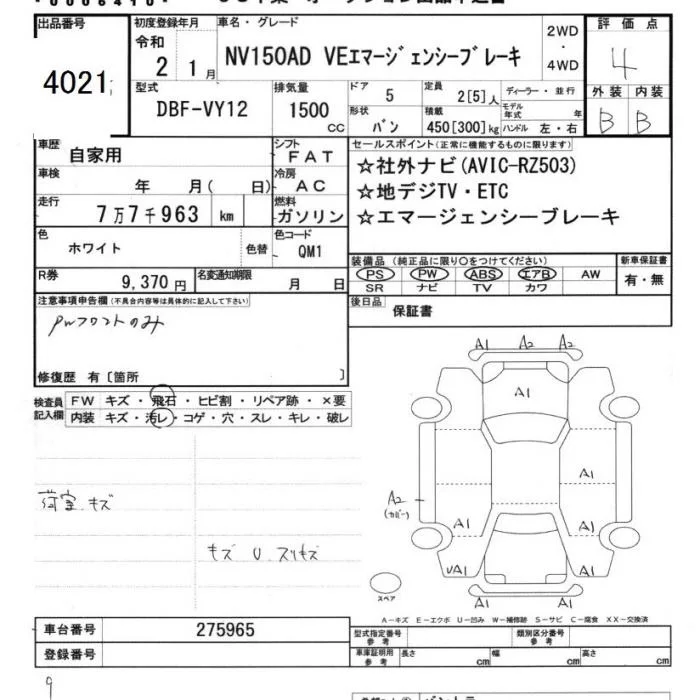 出品番号
4021
初度登録年月
令和
2 1月
車名・グレード
NV150AD VEエマージェンシーブレーキ
2WD
・
4WD
評価点
4
外装 内装
B B
型式
DBF-VY12
排気量
1500
CC
ドア
5
定員
2[5]人
ディーラー・並行
モデル年式 年
形状
バン
積載
450[300]kg
ハンドル 左・右
車歴
自家用
シフト
FAT
車検
年 月( 日)
冷房
AC
走行
7万7千963 km
燃料
ガソリン
色
ホワイト
色替
色コード
QM1
R券
9,370円
名変通知期限
月 日
セールスポイント(正常に機能するものに限ります)
☆社外ナビ(AVIC-RZ503)
☆地デジTV・ETC
☆エマージェンシーブレーキ
装備品(純正品に限り○をつけてください)
PS PW ABS エアB AW
SR ナビ TV カワ
新車保証書
有・無
後日品
保証書
注意事項申告欄(不具合内容等は具体的に記入して下さい)
PWフロントのみ
修復歴 有〔箇所 〕
検査員記入欄
FW キズ・飛石・ヒビ割・リペア跡・×要
内装 キズ・汚レ・コゲ・穴・スレ・キレ・破レ
荷室 キズ
キズ U スリキズ
A1 A2 A2
A1
A1
A2
(カバー)
A1 A1
UA1 A1
スペア
A－キズ E－エクボ U－凹み W－補修跡 S－サビ C－腐食 XX－交換済
車台番号
275965
登録番号
型式指定番号
参考
類別区分番号
参考
車庫証明用
参考
長さ cm 幅 cm 高さ cm
9